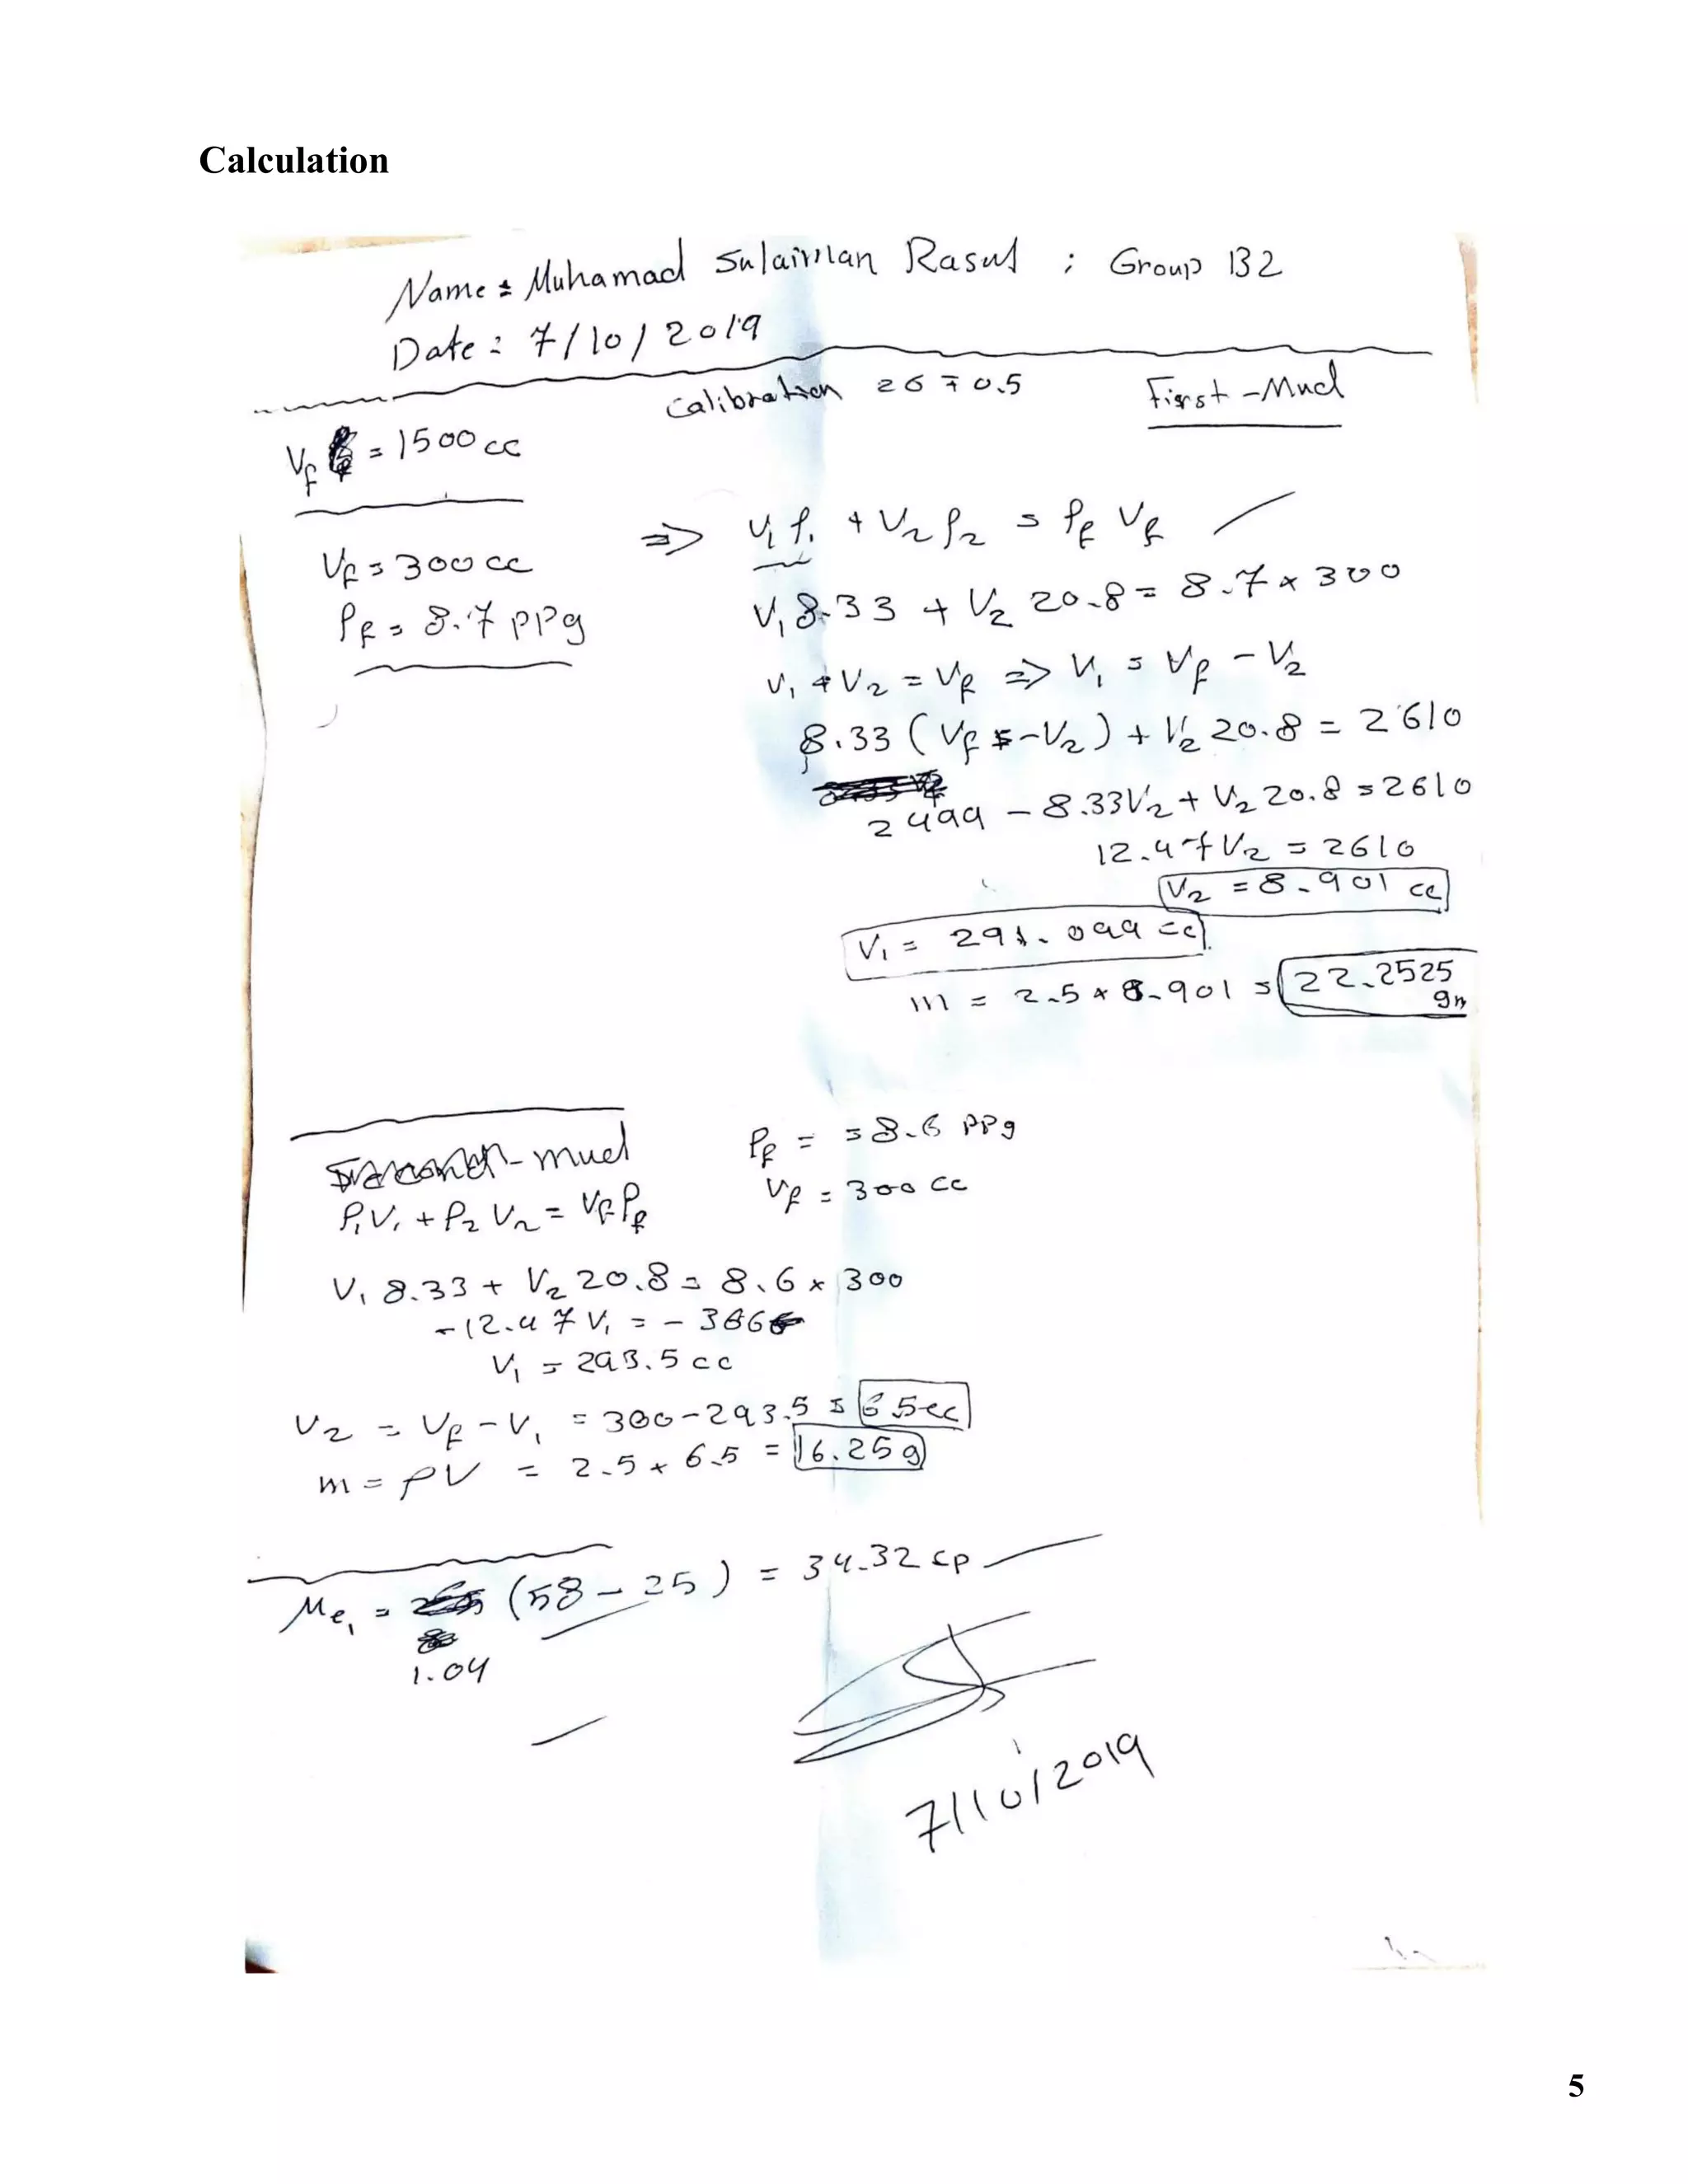 Calculation
Name : Muhamad Sulaiman Rasul ; Group B2
Date : 7/10/2019
Calibration 26 ∓ 0.5
First-Mud
Vf = 1500 cc
Vf = 300 cc
ρf = 8.7 ppg
⇒ V1 ρ1 + V2 ρ2 = ρf Vf
V1 8.33 + V2 20.8 = 8.7 × 300
V1 + V2 = Vf ⇒ V1 = Vf - V2
8.33 ( Vf - V2 ) + V2 20.8 = 2610
2499 - 8.33V2 + V2 20.8 = 2610
12.47 V2 = 2610
V2 = 8.901 cc
V1 = 291.099 cc
m = 2.5 × 8.901 = 22.2525 gm
Second-mud
ρf = = 8.6 ppg
Vf = 300 cc
ρ1V1 + ρ2 V2 = Vf ρf
V1 8.33 + V2 20.8 = 8.6 × 300
-12.47 V1 = - 366
V1 = 293.5 cc
V2 = Vf - V1 = 300 - 293.5 = 6.5 cc
m = ρV = 2.5 × 6.5 = 16.25 g
Me1 = (58 - 25) = 34.32 cp
1.04
7/10/2019
5